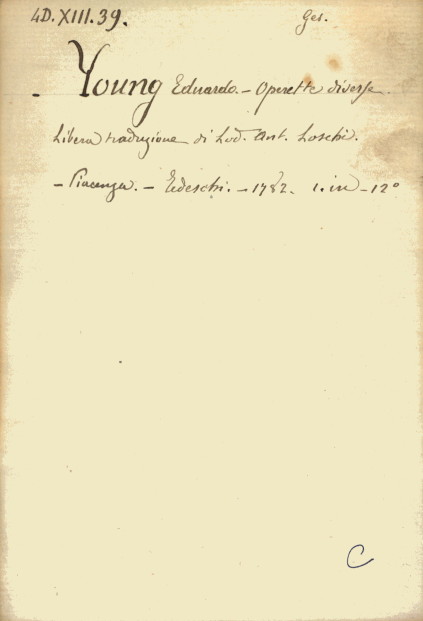 4D. XIII. 39. Ges.
- Young Eduardo. - Operette diverse.
Libera traduzione di Lod. Ant. Loschi.
- Piacenza. - Tedeschi. - 1782. 1. in - 12°
C